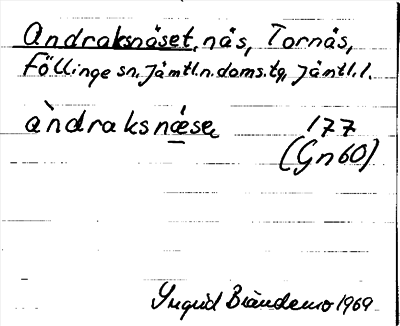 Andraksnäset, näs, Tornäs,
Föllinge sn, Jämtl.n.doms.tg, Jämtl.l.
àndraksnæse 177
(Gn 60)
Yngvid Brändemo 1969